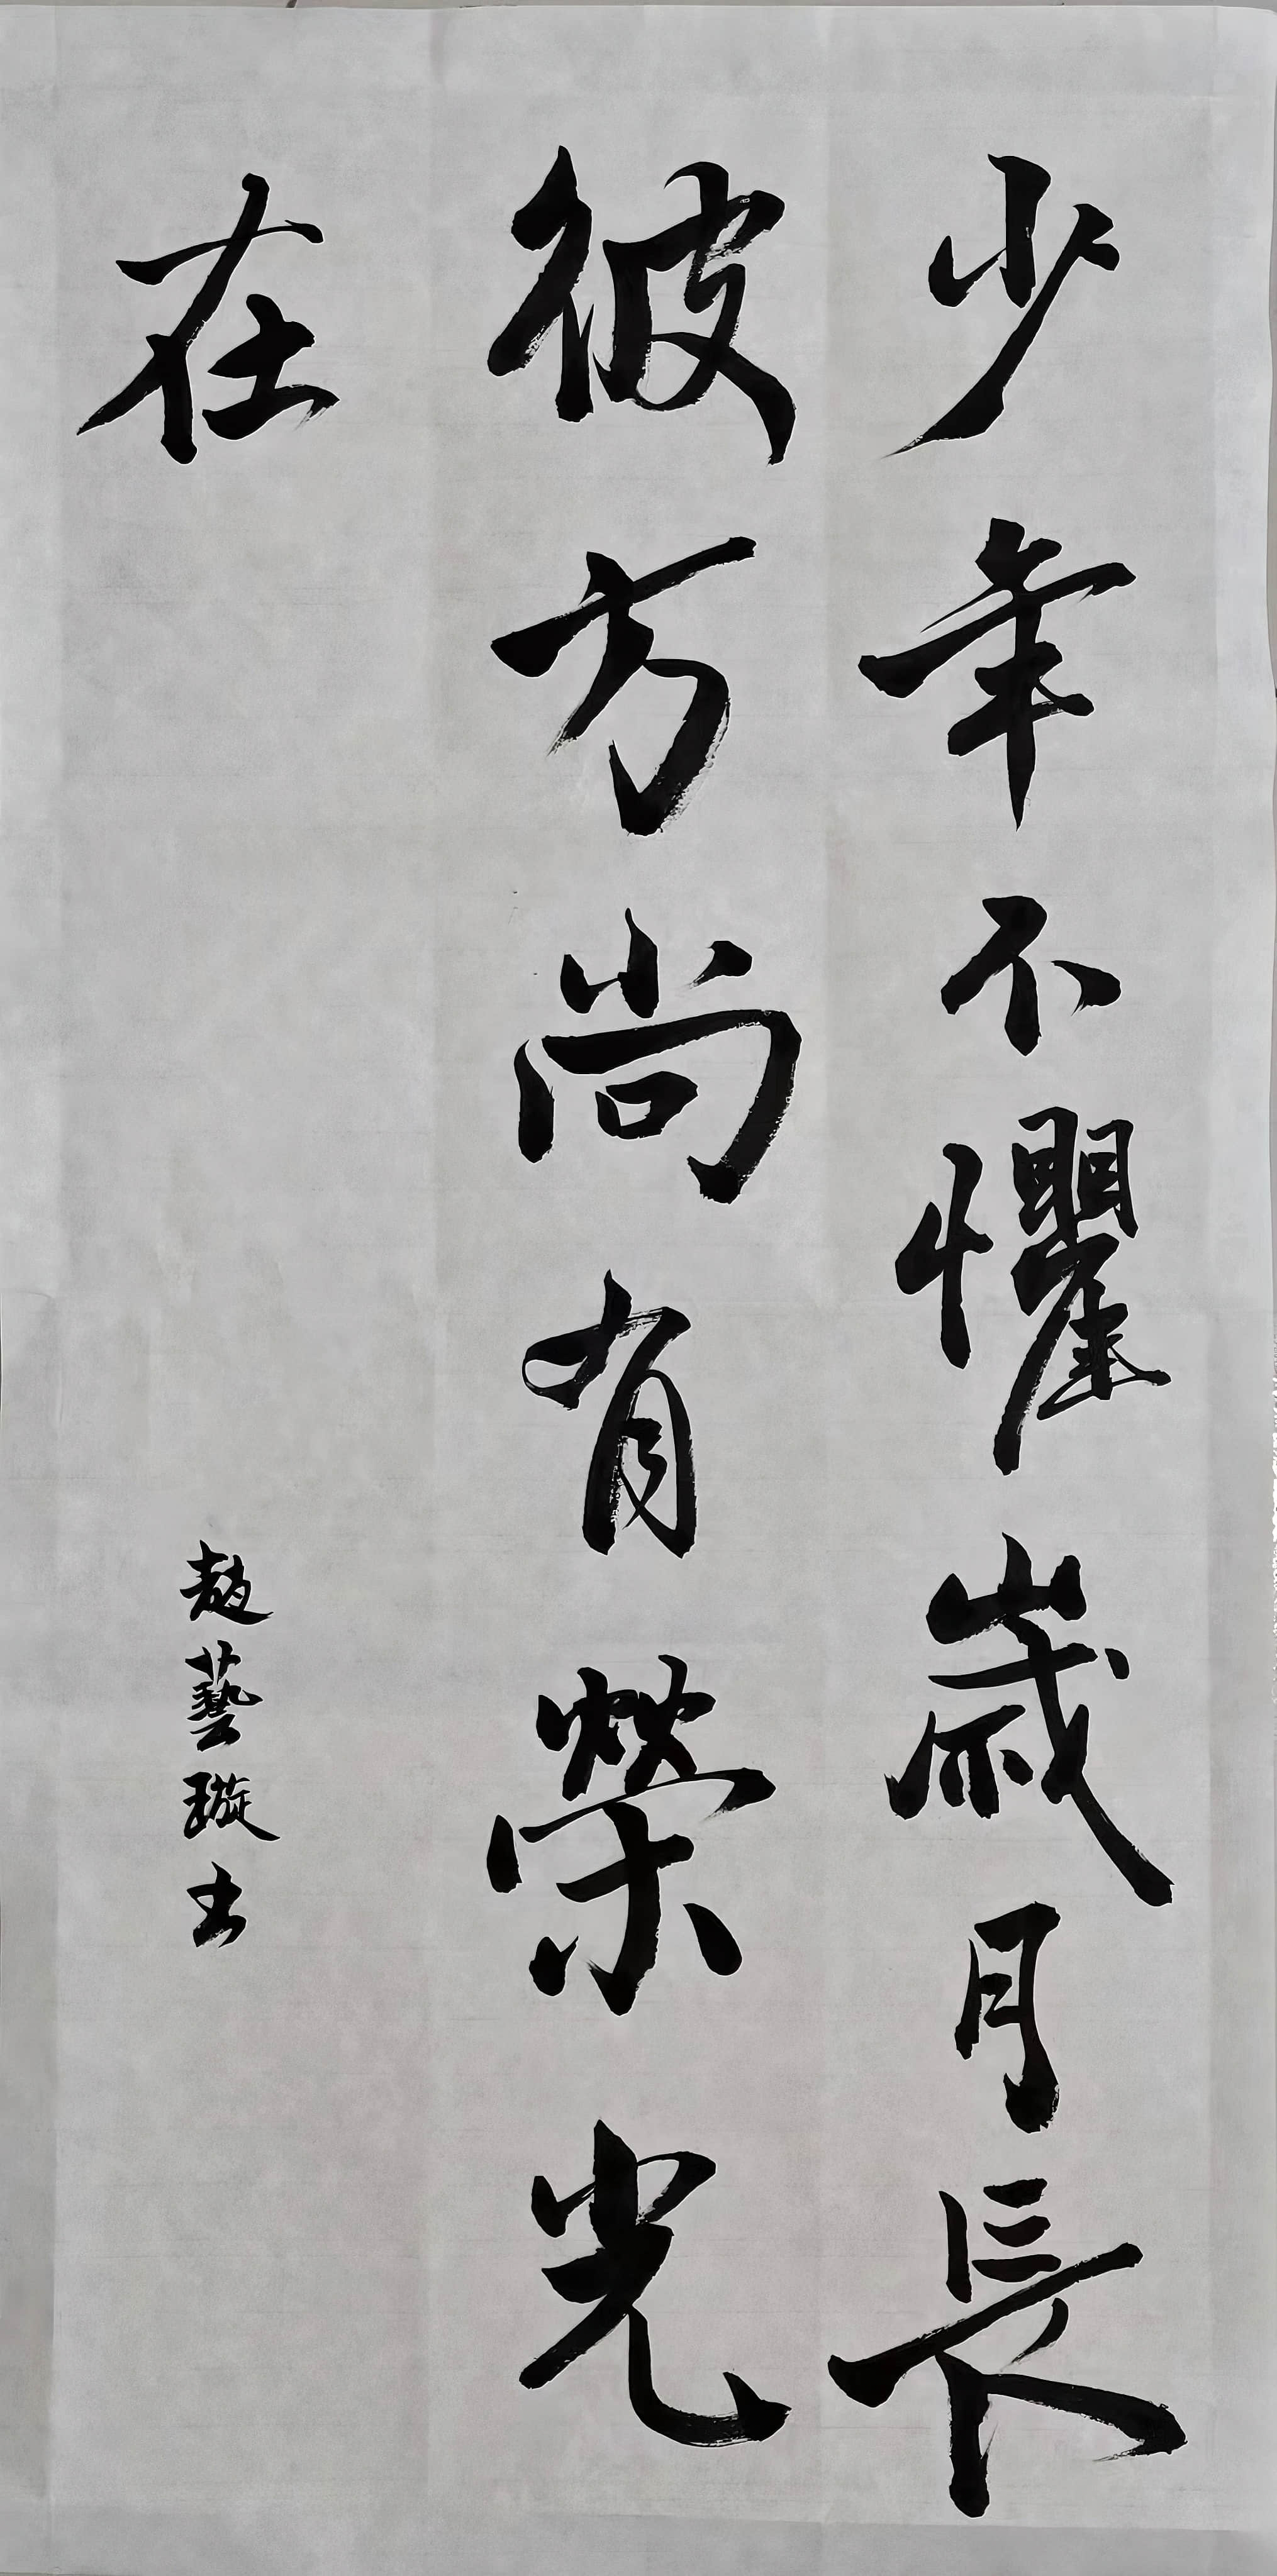 少年不懼歲月長
彼方尚有榮光
在
趙藝璇书